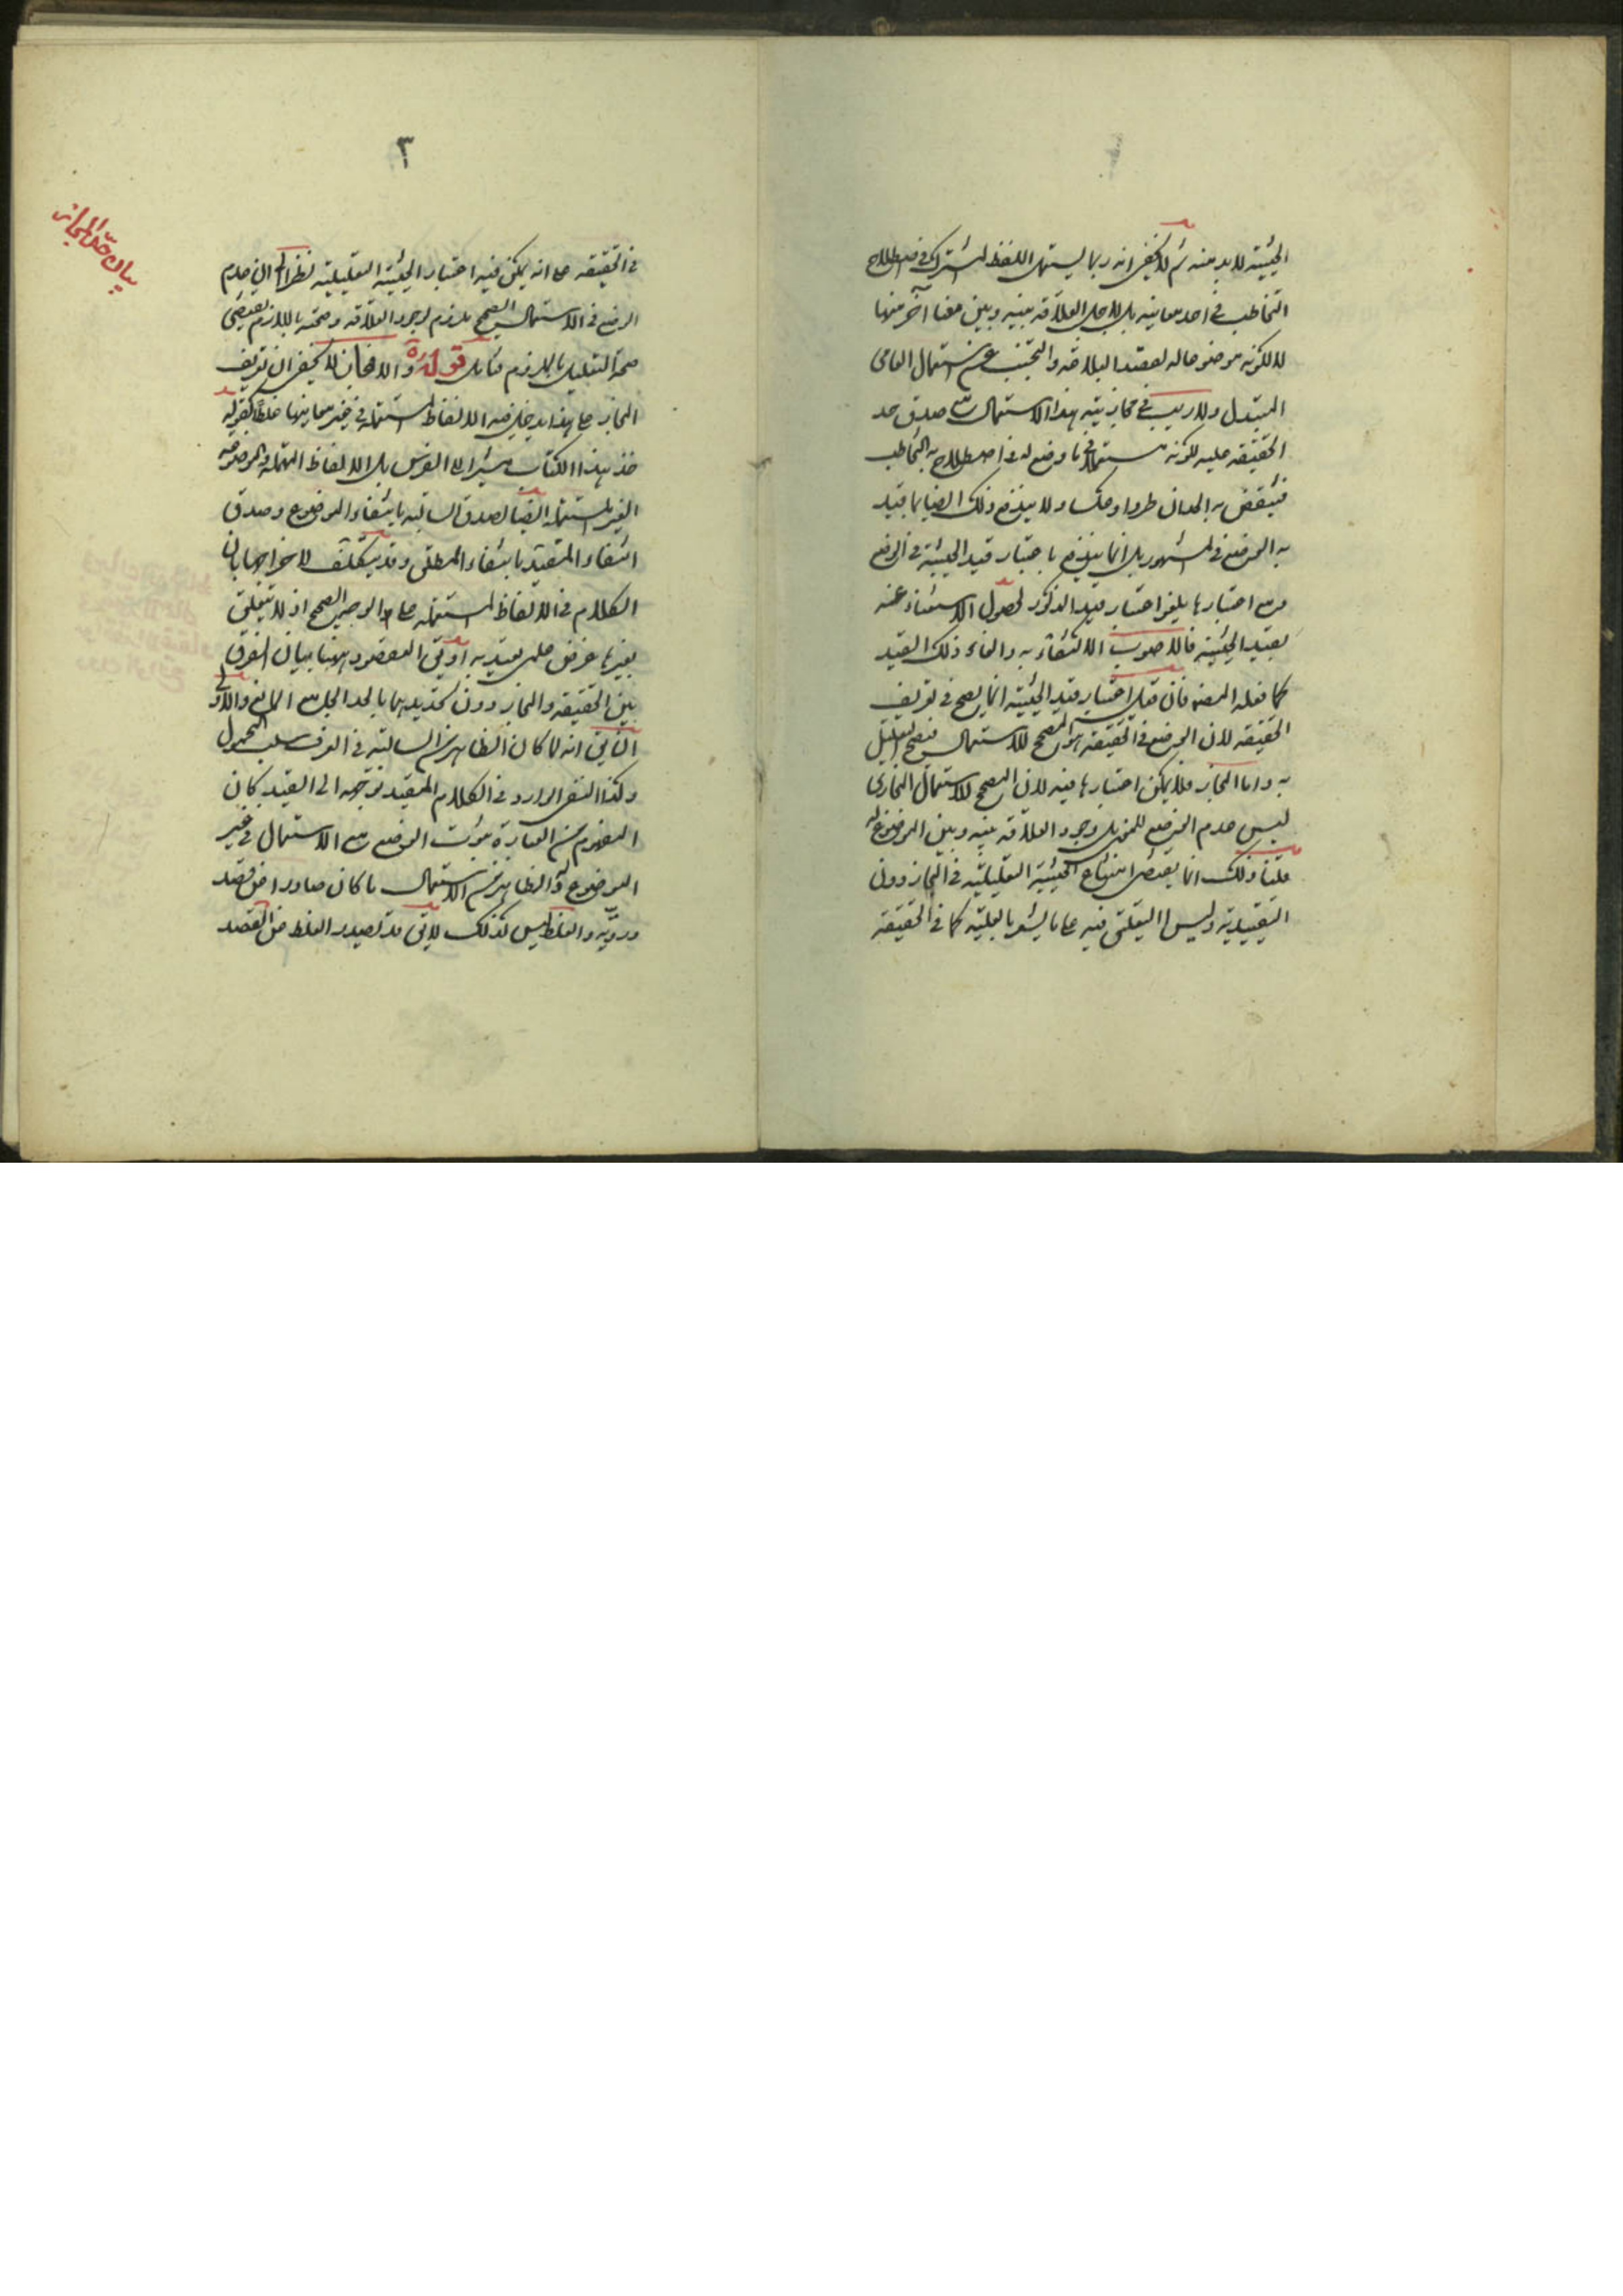 الحيثية لا بد منه ثم لا يخفى انه ربما يستعمل اللفظ المشترك في اصطلاح
التخاطب في احد معانيه بل لاجل العلاقة بينه وبين معنا آخر منها
لا لكونه موضوعا له لقصد البلاغة والتجنب عن استعمال العامى
المبتذل ولا ريب في مجازيته بهذا الاستعمال مع صدق حد
الحقيقة عليه لكونه مستعملا فى ما وضع له فى اصطلاح به التخاطب
فينتقض به الحدان طردا وعكسا ولا يندفع ذلك ايضا بما قيد
به الوضع فى المشهور بل انما يندفع باعتبار قيد الحيثية فى الوضع
ومع اعتبارها يلغو اعتبار قيد المذكور لحصول الاستغناء عنه
بقيد الحيثية فالاصوب الاكتفاء به والغاء ذلك القيد
كما فعله المصنف فان قيل اعتبار قيد الحيثية انما يصح فى تعريف
الحقيقة لان الوضع فى الحقيقة هو المصحح للاستعمال فيصح التعليل
به واما المجاز فلا يمكن اعتبارها فيه لان المصحح للاستعمال المجازى
ليس عدم الوضع للمعنى بل وجود العلاقة بينه وبين الموضوع له
قلنا ذلك انما يقتضى امتناع الحيثية التعليلية فى المجاز دون
التقييدية وليس التعلق فيه على ما يشعر بالعلية كما فى الحقيقة
٣
بيان حد المجاز
فى الحقيقة على انه يمكن فيه اعتبار الحيثية التعليلية نظرا الى ان عدم
الوضع فى الاستعمال الصحيح ملزوم لوجود العلاقة وصحته باللازم يقتضى
صحة التعليل بالملزوم فتأمل قوله ره والا فمجاز لا يخفى ان تعريف
المجاز على هذا يدخل فيه الالفاظ المستعملة فى غير معانيها غلطا كقوله
خذ هذا الكتاب مشيرا الى الفرس بل الالفاظ المهملة والموضوعة
الغير المستعملة ايضا لصدق السالبة بانتفاء الموضوع وصدق
انتفاء المقيد بانتفاء المطلق وقد يتكلف لاخراجها بان
الكلام فى الالفاظ المستعملة على الوجه الصحيح اذ لا يتعلق
بغيرها غرض علمى يعتد به او بان المقصود ههنا بيان الفرق
بين الحقيقة والمجاز دون تحديدهما بالحد الجامع المانع والاولى
التأمل انه لما كان الظاهر من السالبة فى العرف سلب المحمول
وكذا النفى الوارد فى الكلام المقيد توجهه الى القيد كان
المفهوم من العبارة ثبوت الوضع مع الاستعمال فى غير
الموضوع له والظاهر من الاستعمال ما كان صادرا عن قصد
ورويّة والغلط ليس كذلك لا يق قد يصدر الغلط عن القصد